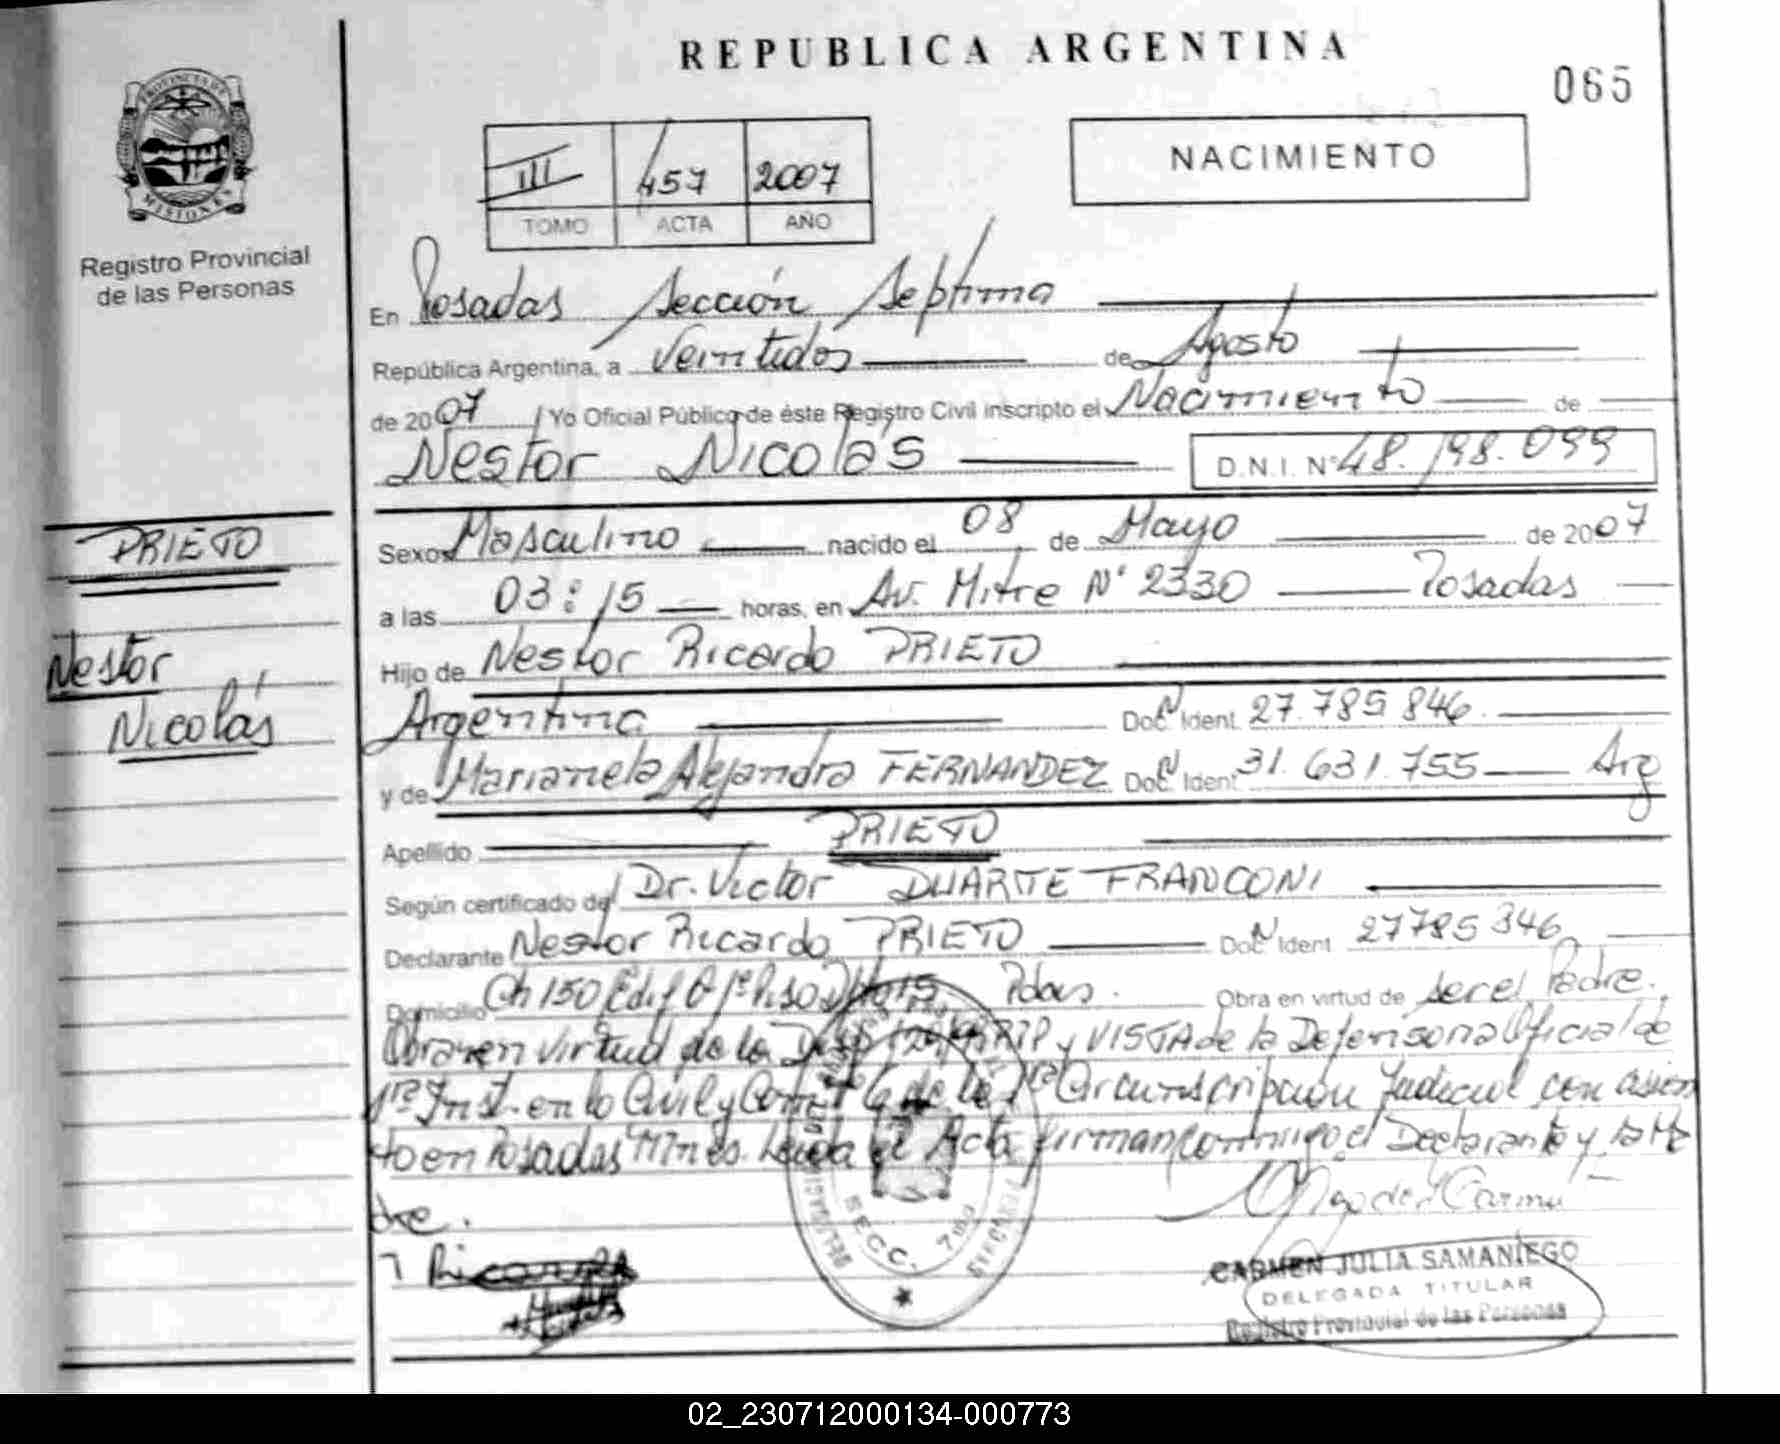 REPUBLICA ARGENTINA
065
PROVINCIA DE
MISIONES
Registro Provincial
de las Personas
III 457 2007
TOMO ACTA AÑO
NACIMIENTO
En Posadas Sección Septima
República Argentina, a Veintidos de Agosto
de 2007 Yo Oficial Público de éste Registro Civil inscripto el Nacimiento de
Nestor Nicolás D.N.I. Nº 48.198.099
PRIETO
Nestor
Nicolás
Sexo Masculino nacido el 08 de Mayo de 2007
a las 03:15 horas, en Av. Mitre Nº 2330 Posadas
Hijo de Nestor Ricardo PRIETO
Argentina Doc. N Ident. 27.785 846
y de Marianela Alejandra FERNANDEZ Doc. N Ident. 31.631.755 Arg
Apellido PRIETO
Según certificado del Dr. Victor DUARTE FRANCONI
Declarante Nestor Ricardo PRIETO Doc. N Ident 27785 346
Domicilio Ch 150 Edif 8 1º Piso Pdas. Obra en virtud de ser el Padre.
Obra en virtud de la y VISTA de la Defensoria Oficial de
1ª Inst. en lo Civil y Com. de la 1ª Circunscripción Judicial con asien
to en Posadas Mnes. Leida el Acta firman conmigo el Declarante y la Ma
dre.
Ricardo
SECC. 7ma
CARMEN JULIA SAMANIEGO
DELEGADA TITULAR
Registro Provincial de las Personas
02_230712000134-000773